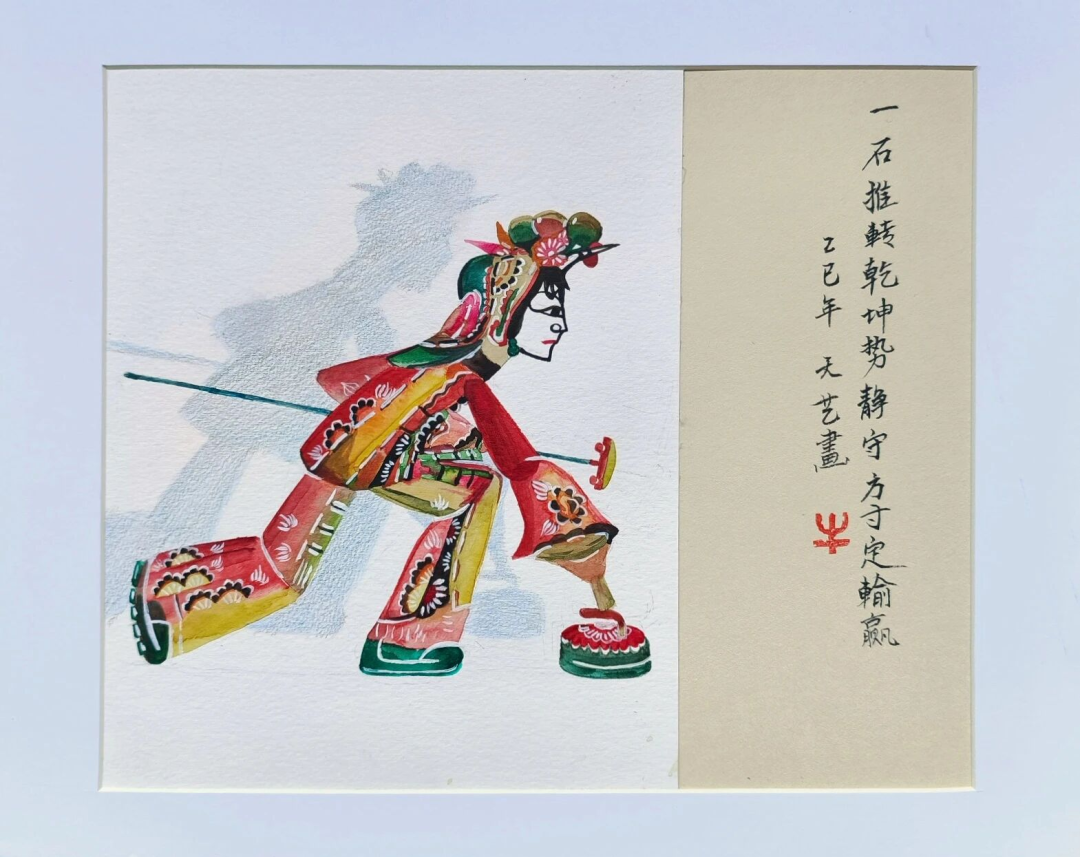 一石推转乾坤势静守方寸定输赢
乙巳年 天艺畫